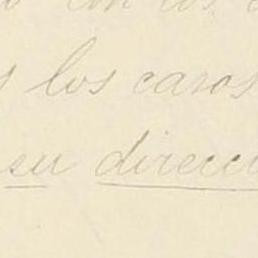 con los
los casos
su direcci